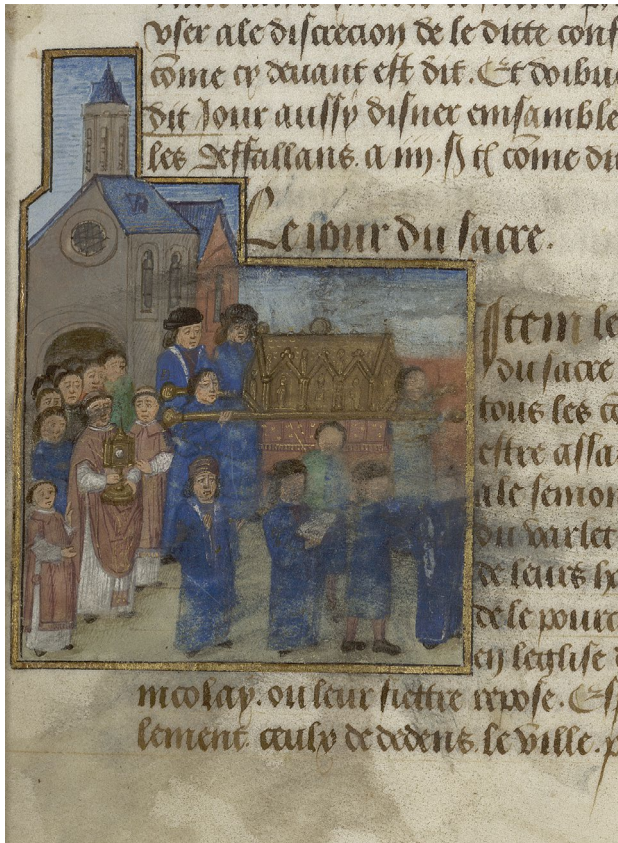 vser a le discrecion de le ditte conf
cōme cy deuant est dit. Et doibue
dit Jour aussy disner emsamble
les deffallans. a iiij. s̃ t̃ cōme di
Le iour du sacre.
Item le
du sacre
tous les
estre assa
a le semon
du varlet
de leurs
de le pour
en leglise
nicolay. ou leur fiettre repose. Es
lement ceulx de dedens le ville.